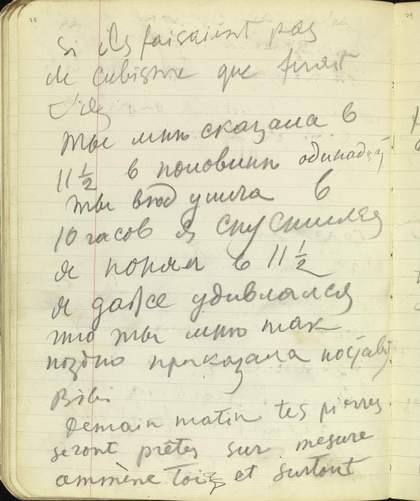 Si ils faisaient pas
de cubisme que
Ты мнѣ сказала в
11 1/2 в половинѣ одинадц
Ты вѣд ушла в
10 часов я спустился
я понял в 11 1/2
я даже удивлялся
что ты мнѣ так
поздно приказала
Demain matin tes pierres
seront prêtes sur mesure
ammène toi et surtout